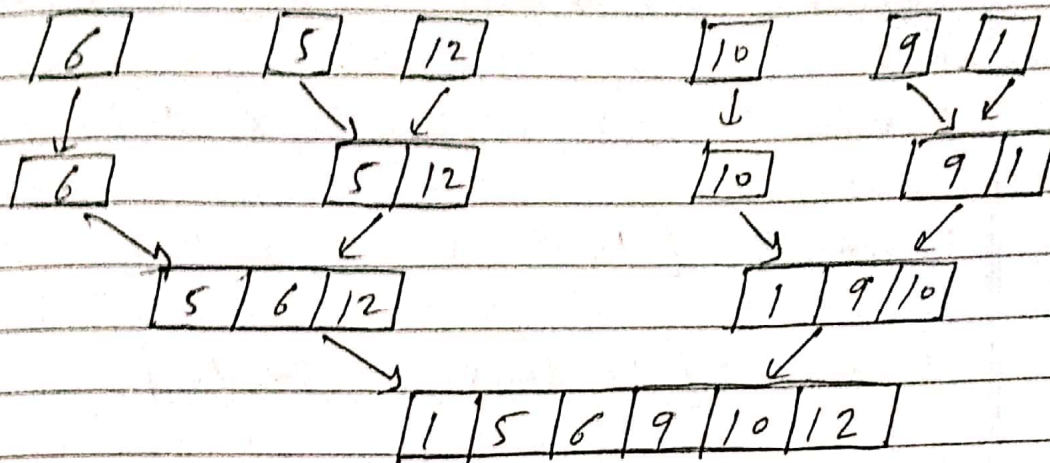 6 5 12 10 9 1
6 5 12 10 9 1
5 6 12 1 9 10
1 5 6 9 10 12